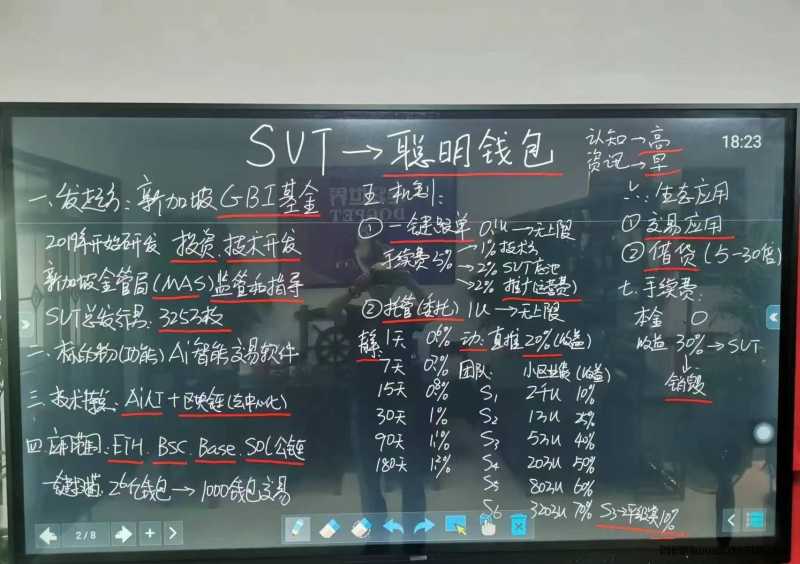 SVT→聪明钱包
认知→高
资讯→早
18:23
一、发起方：新加坡GBI基金
2019年开始研发 投资、技术开发
新加坡金管局(MAS)监管和指导
SVT总发行量：3253枚
二、标的物(功能)Ai智能交易软件
三、技术 Ai人工+区块链(去中心化)
四、应用范围：ETH、BSC、Base、SOL公链
一键扫描 2.6亿钱包→1000钱包交易
五、机制：
① 一键跟单 0.1U→无上限
手续费5% →1%技术方
→2% SVT底池
→2% 推广(运营费)
② 托管(委托) 1U→无上限
静： 1天 0.6%
7天 0.7%
15天 0.8%
30天 1%
90天 1.1%
180天 1.3%
动：直推20%(收益)
团队： 小区业绩(收益)
S1 10%
S2
S3 40%
S4 50%
S5 60%
S6 70%
平级奖10%
六：生态应用
① 交易应用
② 借贷(5-30倍)
七、手续费：
本金 0
收益 30%→SVT
↓
销毁
2/8